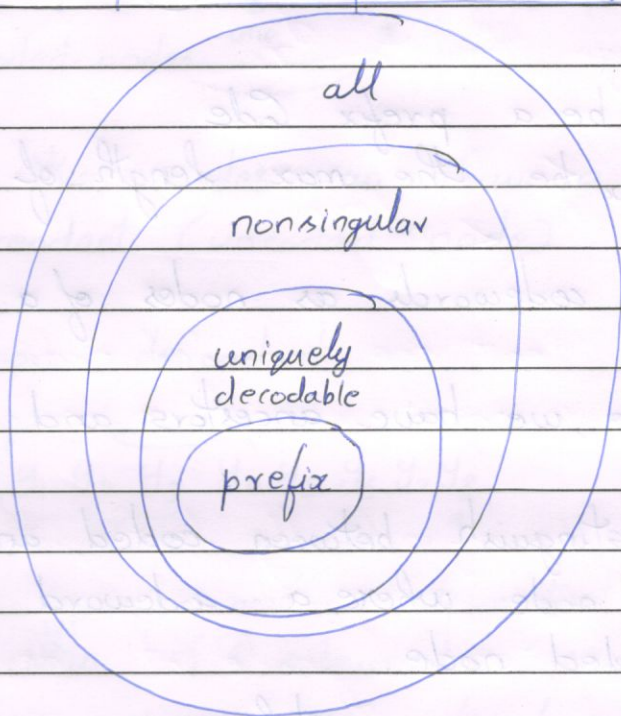 all
nonsingular
uniquely
decodable
prefix